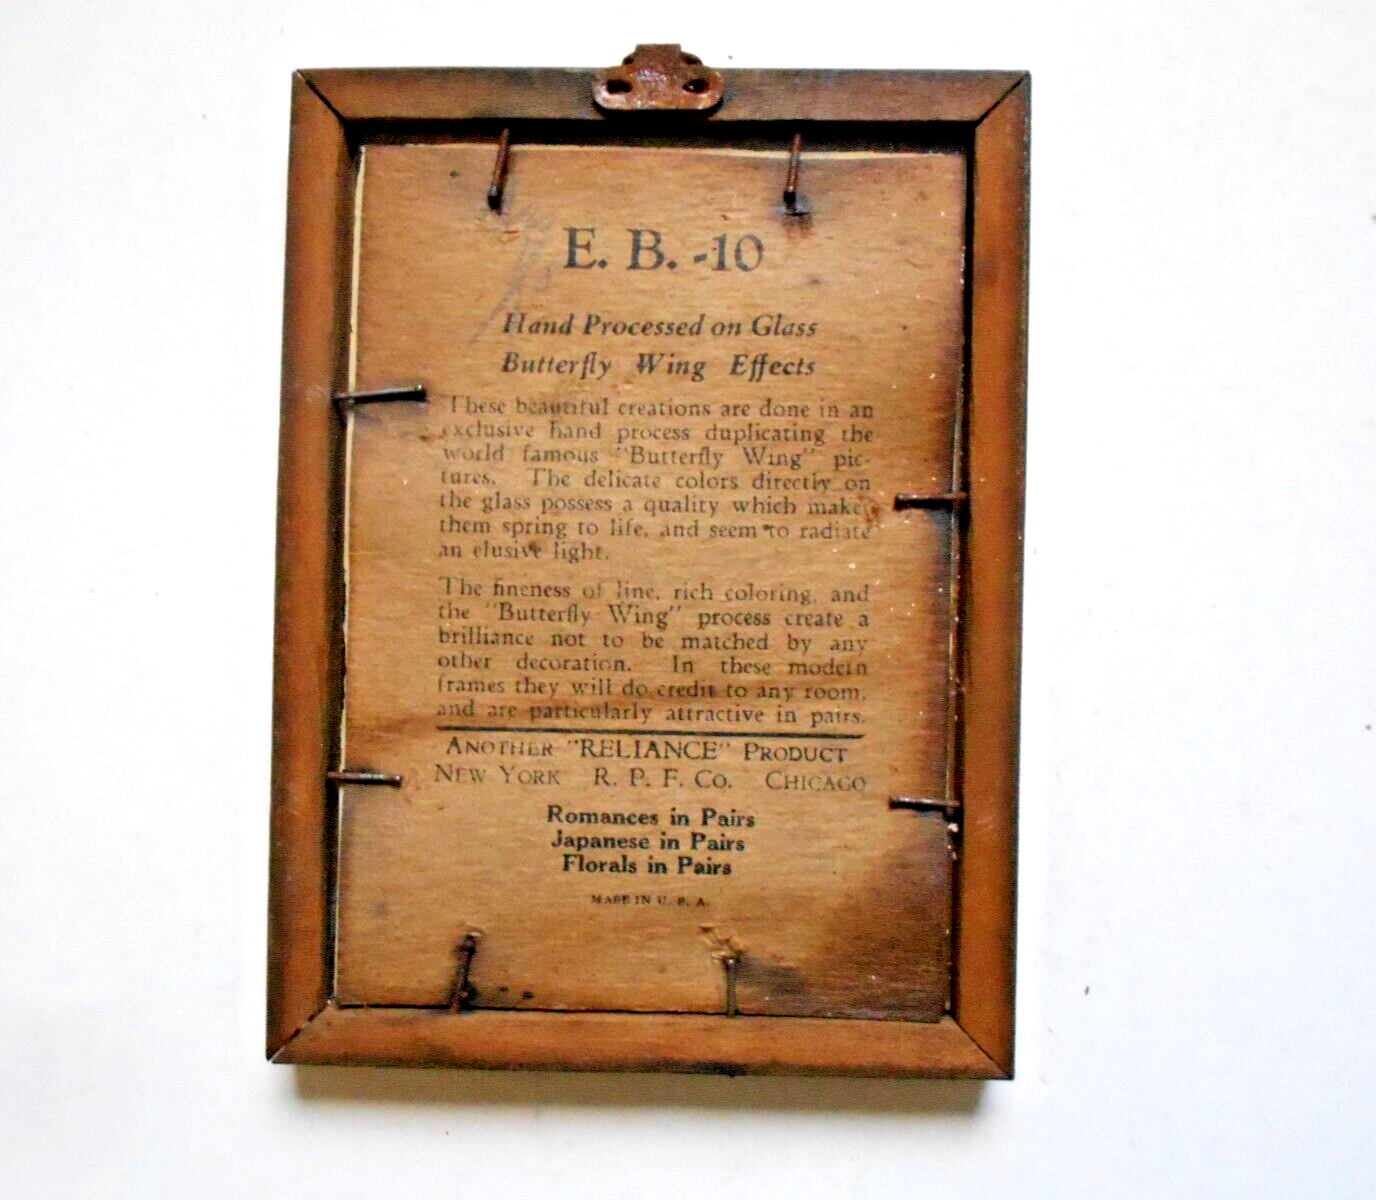 E. B. -10
Hand Processed on Glass
Butterfly Wing Effects
These beautiful creations are done in an
exclusive hand process duplicating the
world famous "Butterfly Wing" pic-
tures. The delicate colors directly on
the glass possess a quality which make
them spring to life, and seem to radiate
an elusive light.
The fineness of line, rich coloring, and
the "Butterfly Wing" process create a
brilliance not to be matched by any
other decoration. In these modern
frames they will do credit to any room,
and are particularly attractive in pairs.
ANOTHER "RELIANCE" PRODUCT
NEW YORK R. P. F. CO. CHICAGO
Romances in Pairs
Japanese in Pairs
Florals in Pairs
MADE IN U. S. A.